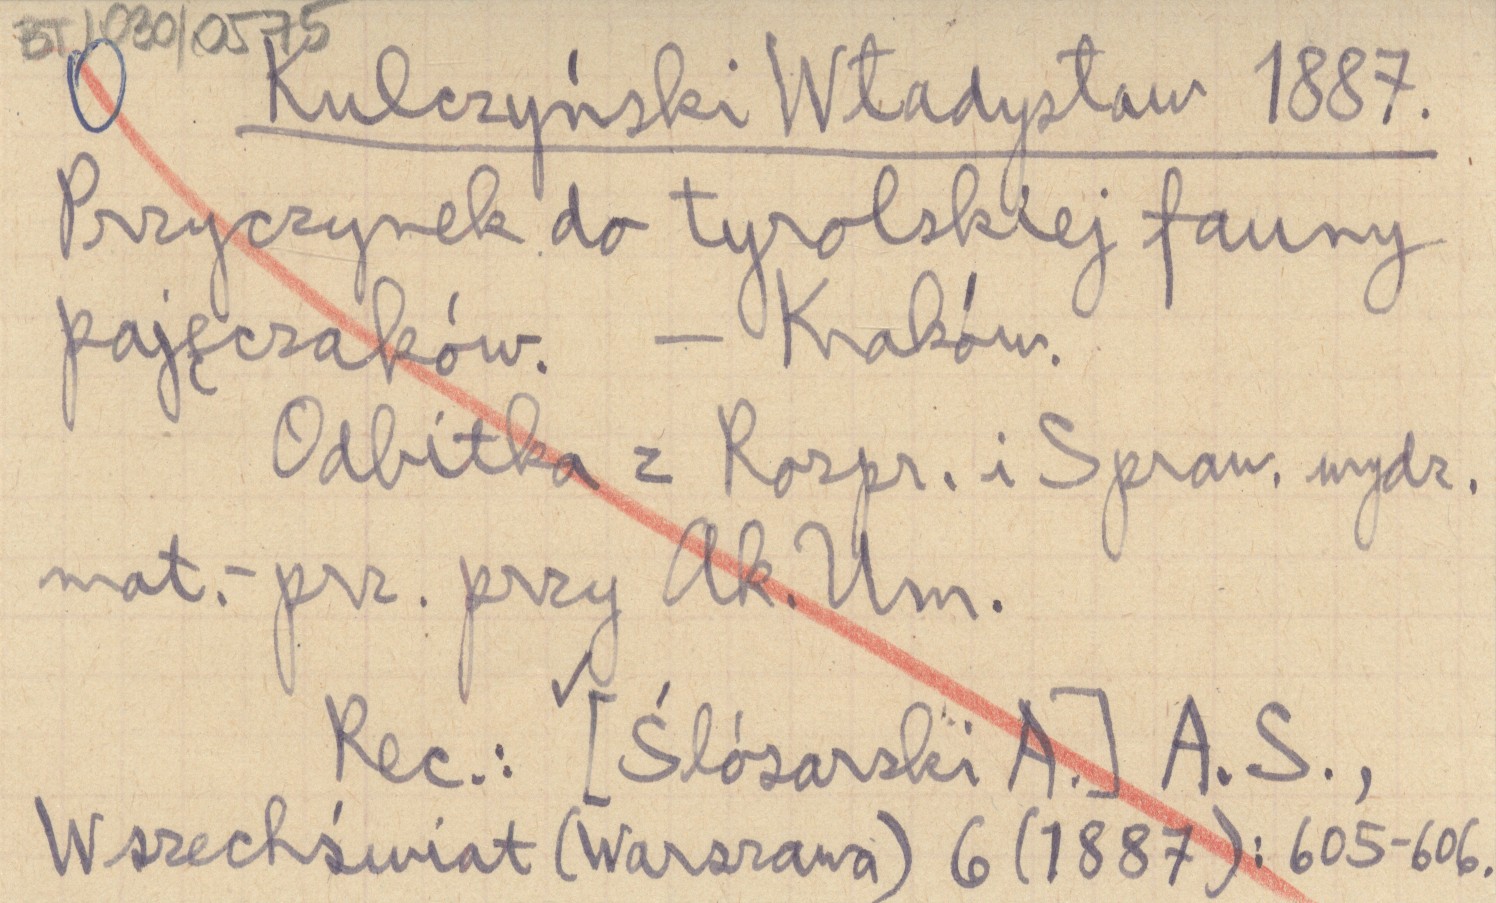 BT/030/0575
Kulczyński Władysław 1887.
Przyczynek do tyrolskiej fauny
pajęczaków. — Kraków.
Odbitka z Rozpr. i Spraw. wydz.
mat.-prz. przy Ak. Um.
Rec.: [Ślósarski A.] A.S.,
Wszechświat (Warszawa) 6 (1887): 605-606.